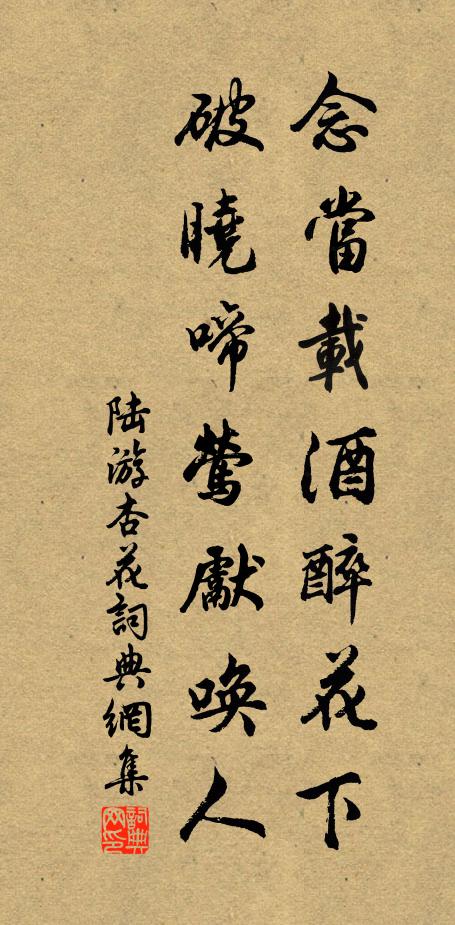 念當載酒醉花下
破曉啼鶯獻喚人
陆游杏花詞典網集
詞典网印